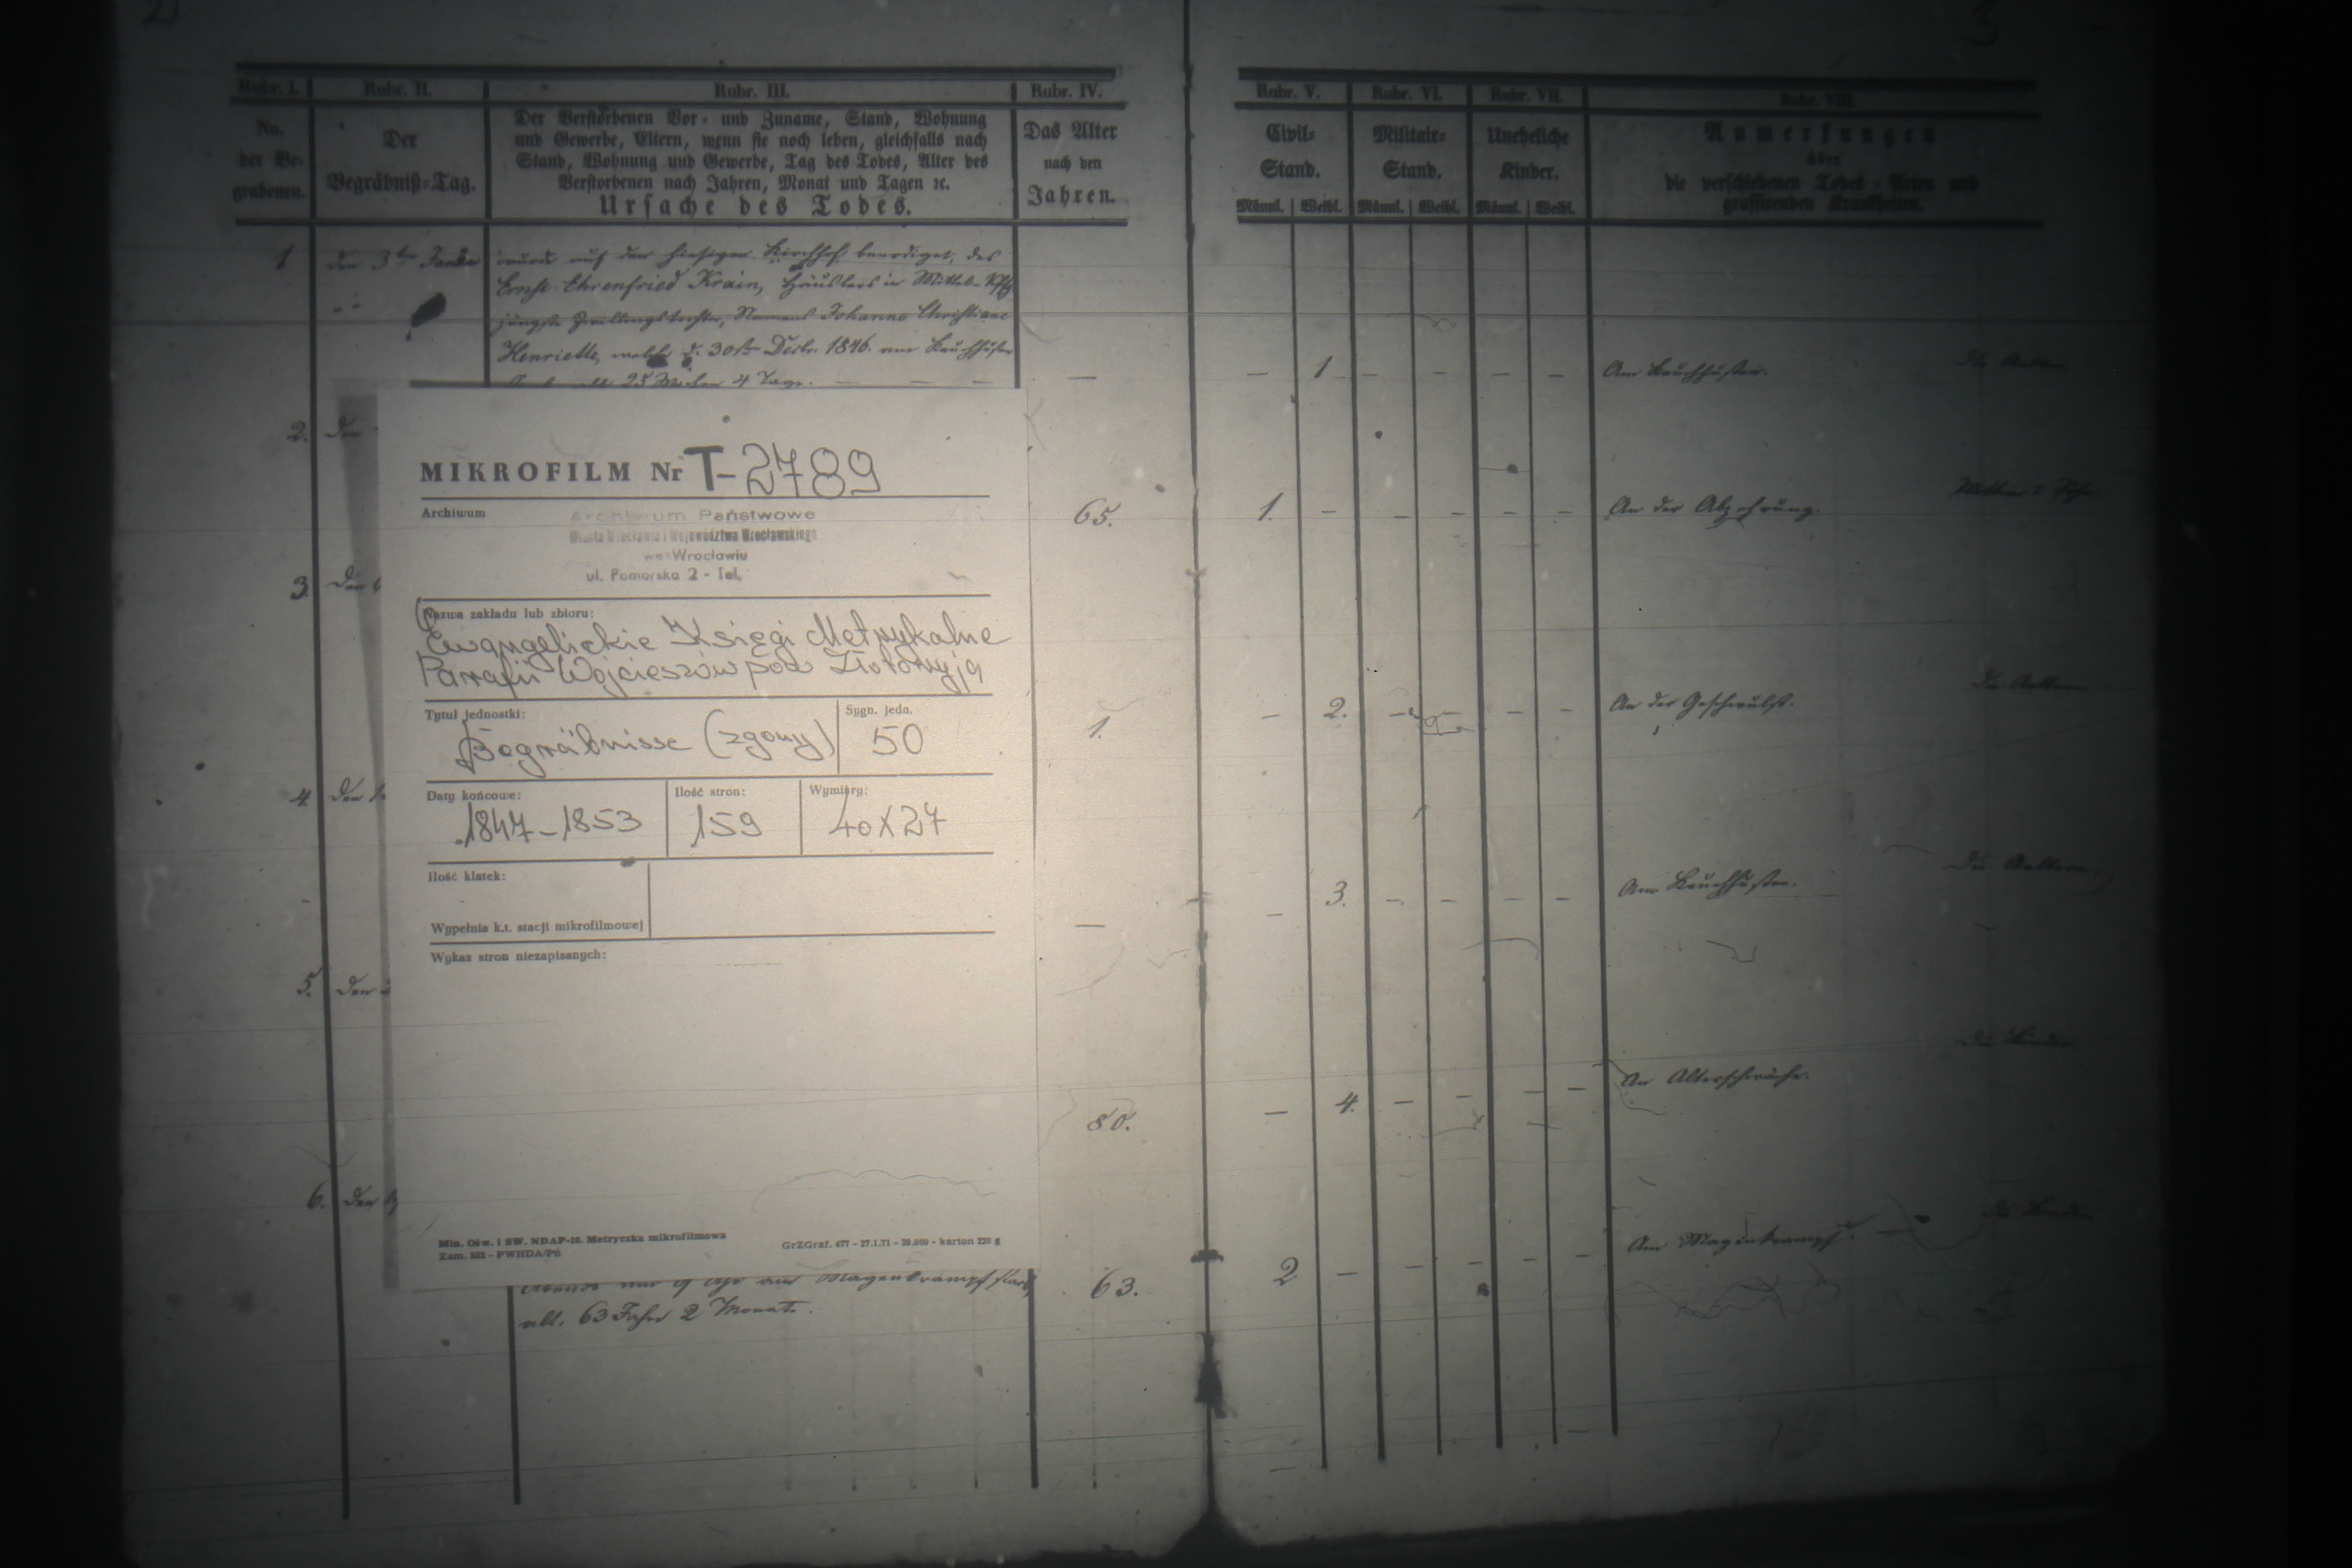 2
3
Rubr. I.
Rubr. II.
Rubr. III.
Rubr. IV.
Rubr. V.
Rubr. VI.
Rubr. VII.
Rubr. VIII.
No.
der Be-
grabenen.
Der
Begräbniß-Tag.
Der Verstorbenen Vor- und Zuname, Stand, Wohnung
und Gewerbe, Eltern, wenn sie noch leben, gleichfalls nach
Stand, Wohnung und Gewerbe, Tag des Todes, Alter des
Verstorbenen nach Jahren, Monat und Tagen ꝛc.
Ursache des Todes.
Das Alter
nach den
Jahren.
Civil-
Stand.
Männl. Weibl.
Militair-
Stand.
Männl. Weibl.
Uneheliche
Kinder.
Männl. Weibl.
Anmerkungen
über
die verschiedenen Todes-Arten und
grassirenden Krankheiten.
1 den 3ten wurde auf dem hiesigen Kirchhof beerdiget, des
Ernst Ehrenfried Krain, Häuslers in Mittel-
jüngste Zwillingstochter, Namens Johanne Christiane
Henriette, welche d. 30ten Decbr. 1846. am Keuchhusten
25 Wochen 4 Tage. — — —
— — 1 — — — — Am Keuchhusten. die Aeltern
2. den
65. 1. — — — — — An der Abzehrung.
3. den
1. — 2. — — — — An der Geschwulst. die Aeltern
4. den
— — 3. — — — — Am Keuchhusten. die Aeltern
5. den
80. — 4. — — — — An Altersschwäche. die Kinder
6. den
63. 2 — — — — — Am Magenkrampf. — die Kinder
Abends um 9 Uhr am Magenkrampf starb,
alt. 63 Jahr 2 Monate.
MIKROFILM Nr T-2789
Archiwum
Archiwum Państwowe
Miasta Wrocławia i Województwa Wrocławskiego
we Wrocławiu
ul. Pomorska 2 - Tel.
Nazwa zakładu lub zbioru:
Ewangelickie Księgi Metrykalne
Parafii Wojcieszów pod Złotoryją
Tytuł jednostki:
Begräbnisse (zgony)
Sygn. jedn.
50
Daty końcowe:
1847-1853
Ilość stron:
159
Wymiary:
40X27
Ilość klatek:
Wypełnia k.t. stacji mikrofilmowej
Wykaz stron niezapisanych:
Min. Ośw. i SW. NDAP-18. Metryczka mikrofilmowa
Zam. 522 - PWHDA/Pń
GrZGraf. 477 - 27.1.71 - 20.000 - karton 220 g